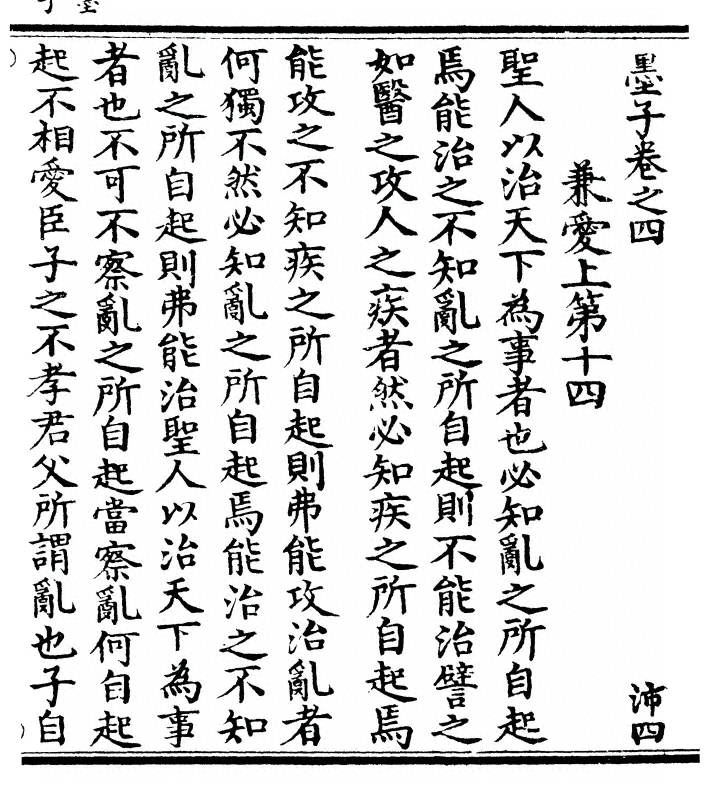 墨子卷之四 沛四
兼愛上第十四
聖人以治天下為事者也必知亂之所自起
焉能治之不知亂之所自起則不能治譬之
如醫之攻人之疾者然必知疾之所自起焉
能攻之不知疾之所自起則弗能攻治亂者
何獨不然必知亂之所自起焉能治之不知
亂之所自起則弗能治聖人以治天下為事
者也不可不察亂之所自起當察亂何自起
起不相愛臣子之不孝君父所謂亂也子自